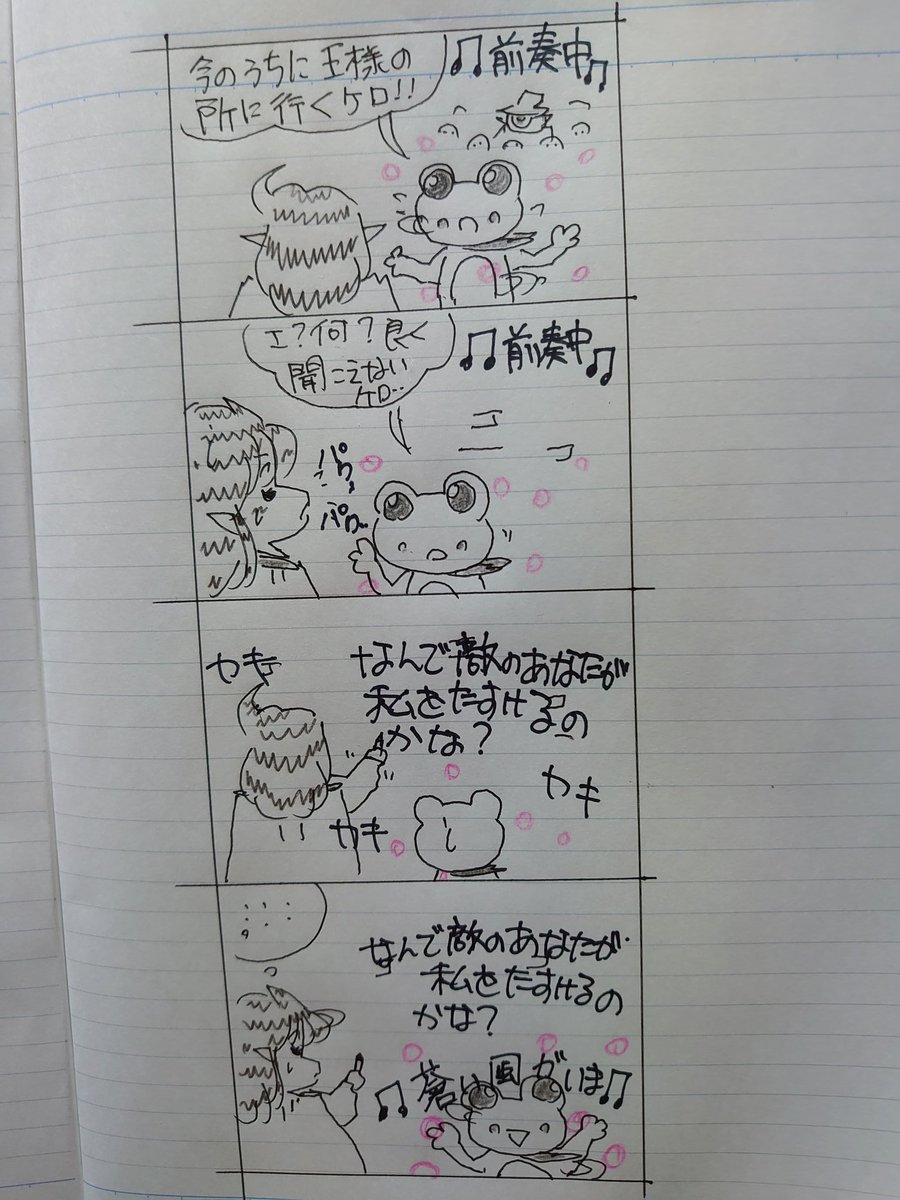 今のうちに王様の
所に行くケロ!!
♫前奏中♫
エ?何?良く
聞こえない
ケロ‥
♫前奏中♫
ニコ
ニコ
パク
パク‥
カキ
なんで敵のあなたが
私をたすけるの
かな?
カキ
カキ
なんで敵のあなたが
私をたすけるの
かな?
♫蒼い風がいま♫